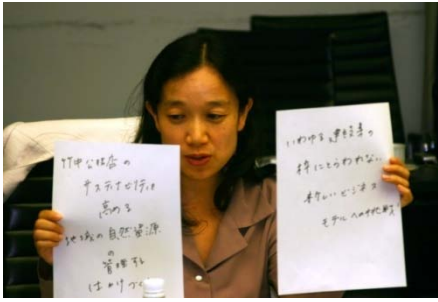 竹中工務店の
サスティナビリティを
高める
地域の自然資源
の
管理する
いわゆる建設業の
枠にとらわれない
新しいビジネス
モデルへの挑戦